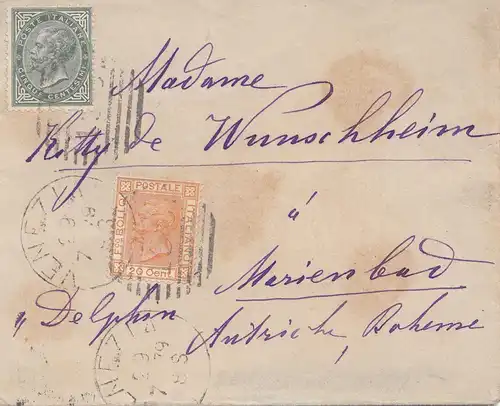 POSTE ITALIANE
CINQUE CENTESIMI
Madame
Kitty de Wunschheim
Fco BOLLO
POSTALE
ITALIANO
20 Cent
à
Marienbad
"Delphin
Autriche, Boheme